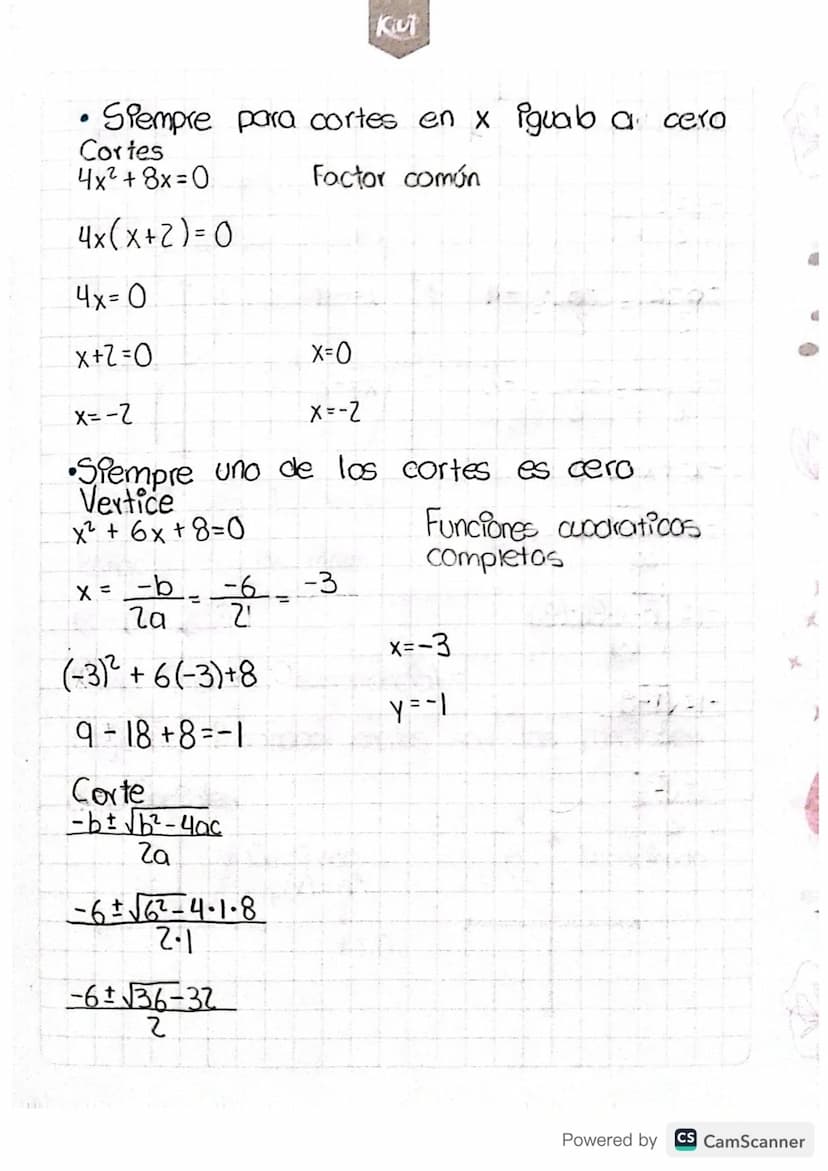 Kiut
• Siempre para cortes en x igualo a cero
Cortes
4x² + 8x = 0 Factor común
4x(x+2) = 0
4x = 0
x+2 = 0 x=0
x = -2 x = -2
• Siempre uno de los cortes es cero
Vertice
x² + 6x + 8 = 0 Funciones cuadraticas
completas
x = -b/2a = -6/2 = -3
x = -3
(-3)² + 6(-3) + 8
y = -1
9 - 18 + 8 = -1
Corte
-b ± √b² - 4ac
2a
-6 ± √6² - 4·1·8
2·1
-6 ± √36 - 32
2
Powered by CS CamScanner